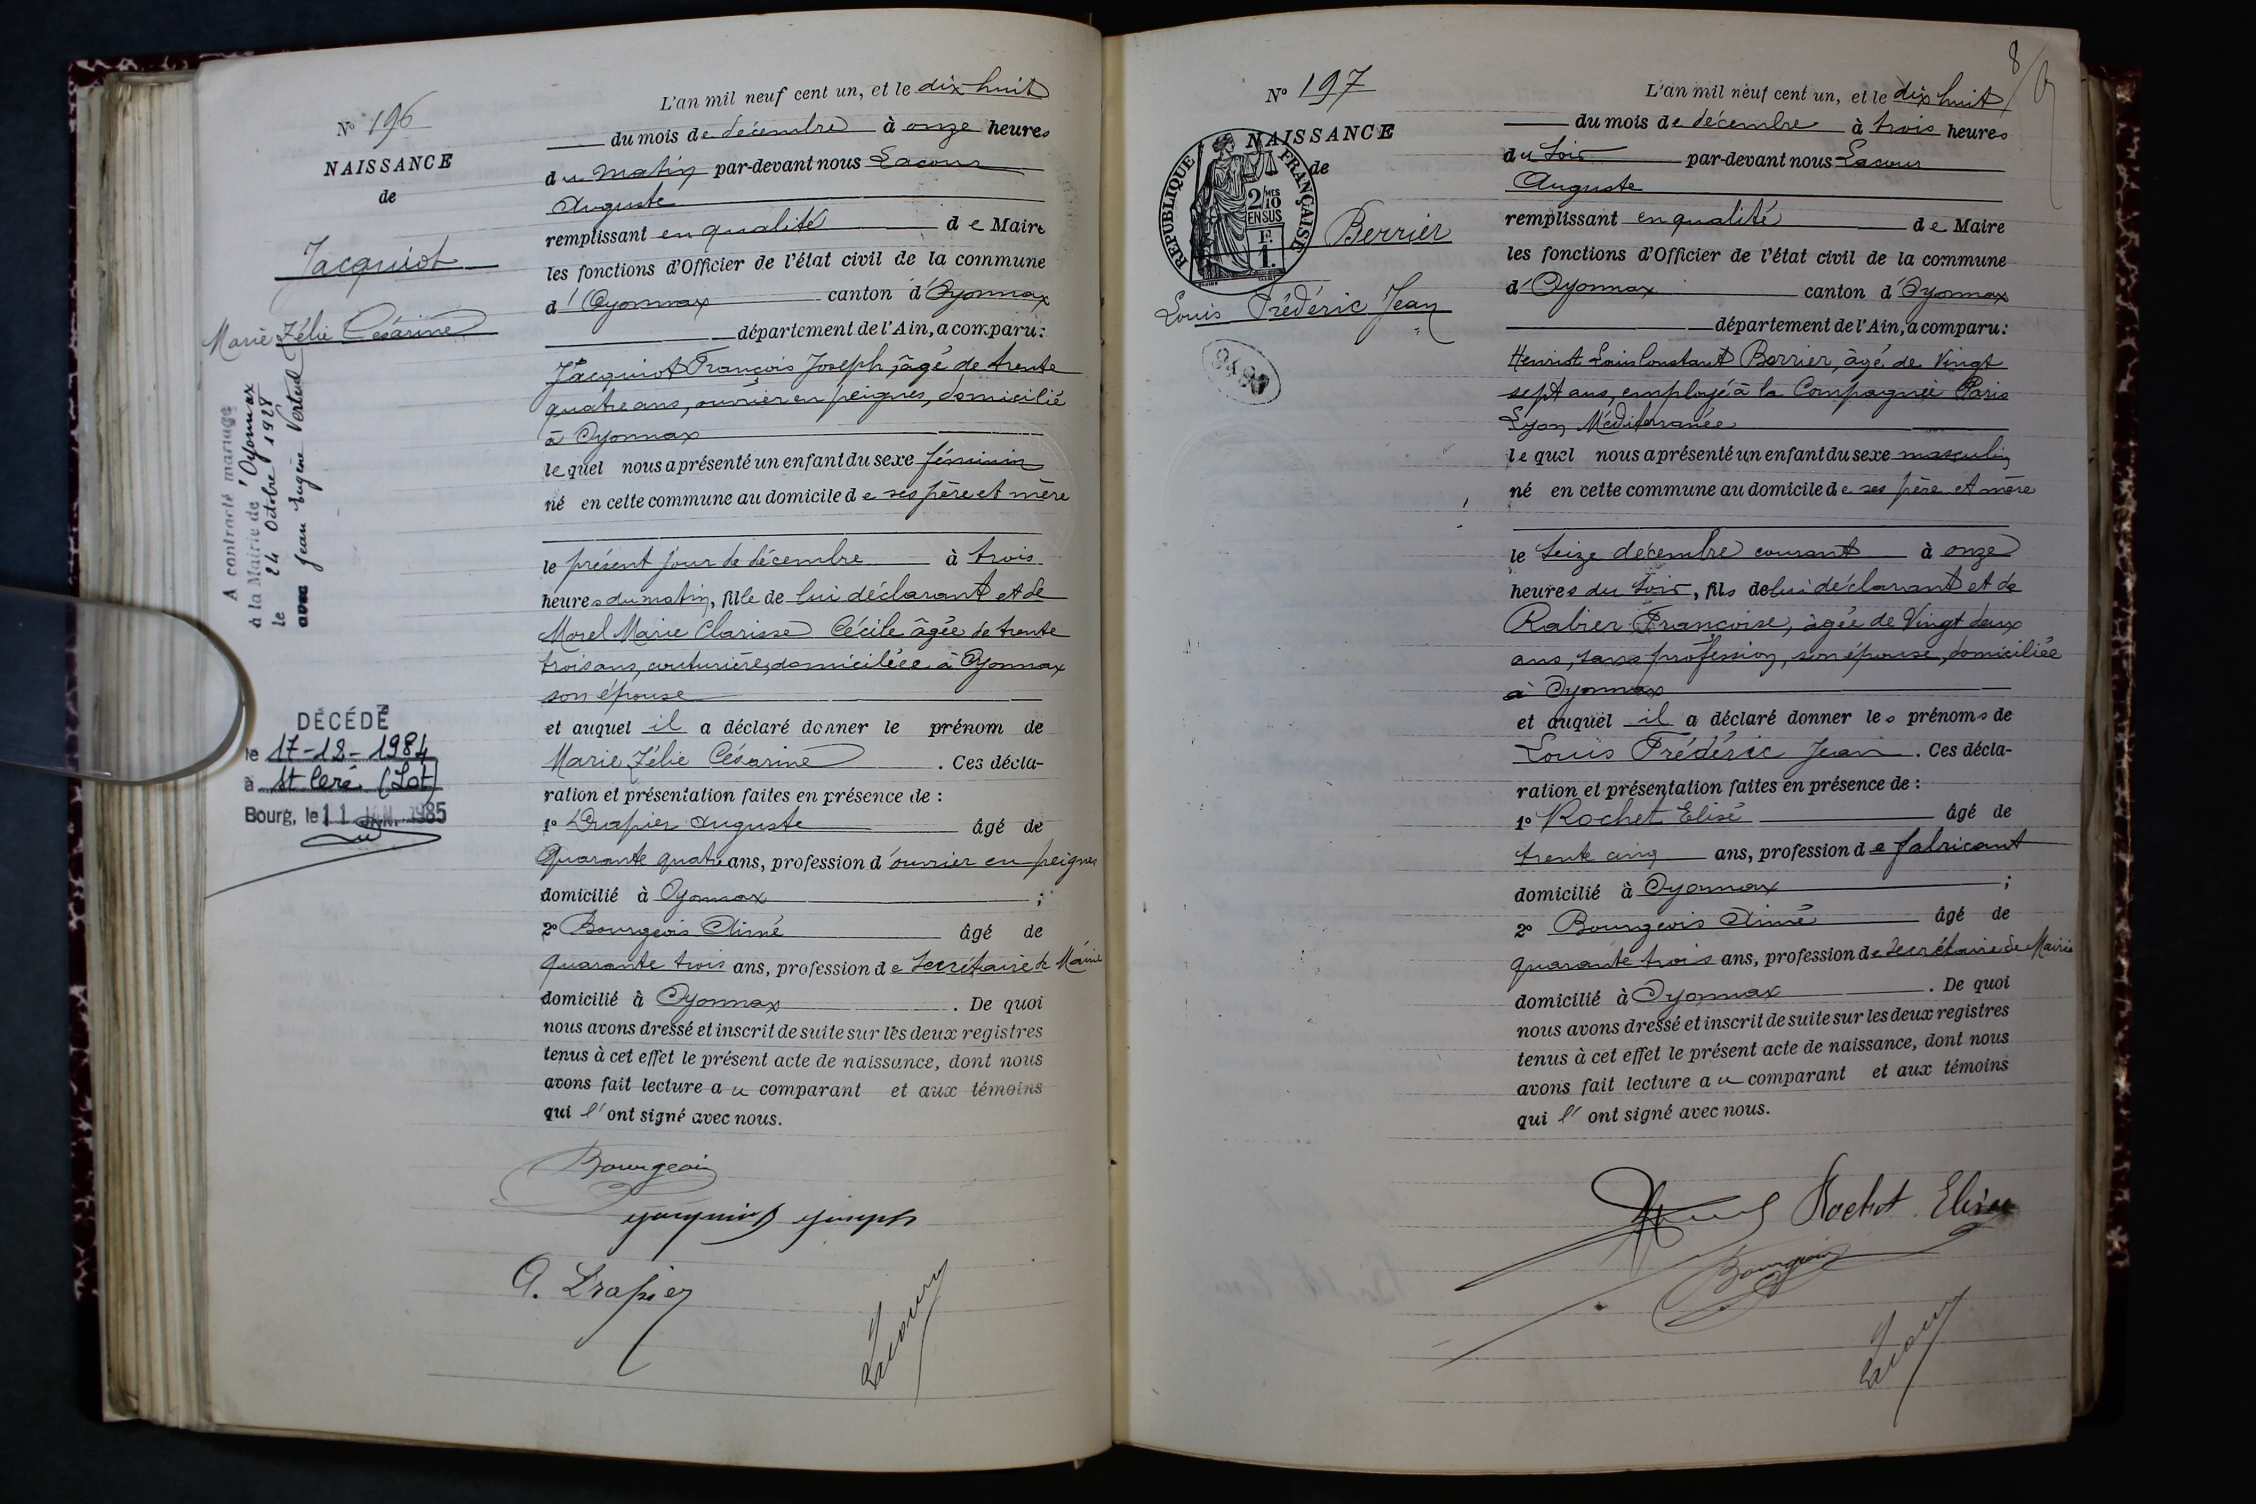 N° 196
NAISSANCE
de
Jacquiot
Marie Zélie Césarine
A contracté mariage
à la Mairie de Oyonnax
le 24 Octobre 1928
avec Jean Eugène
DÉCÉDÉE
le 17-12-1984
à St Ceré (Lot)
Bourg, le 11 JAN. 1985
L'an mil neuf cent un, et le dix huit
du mois de décembre à onze heures
du matin par-devant nous Lacour
Auguste
remplissant en qualité de Maire
les fonctions d'Officier de l'état civil de la commune
d'Oyonnax canton d'Oyonnax
département de l'Ain, a comparu:
Jacquiot François Joseph, âgé de trente
quatre ans, ouvrier en peignes, domicilié
à Oyonnax
lequel nous a présenté un enfant du sexe féminin
né en cette commune au domicile de ses père et mère
le présent jour de décembre à trois
heures du matin, fille de lui déclarant et de
Morel Marie Clarisse Cécile âgée de trente
trois ans, couturière, domiciliée à Oyonnax
son épouse
et auquel il a déclaré donner le prénom de
Marie Zélie Césarine. Ces décla-
ration et présentation faites en présence de :
1° Drapier Auguste âgé de
Quarante quatre ans, profession d'ouvrier en peignes
domicilié à Oyonnax ;
2° Bourgeois Aimé âgé de
quarante trois ans, profession de Secrétaire de Mairie
domicilié à Oyonnax. De quoi
nous avons dressé et inscrit de suite sur les deux registres
tenus à cet effet le présent acte de naissance, dont nous
avons fait lecture au comparant et aux témoins
qui l'ont signé avec nous.
Bourgeois
Jacquiot Joseph
A. Drapier
Lacour
8
N° 197
NAISSANCE
de
RÉPUBLIQUE FRANÇAISE
2/10 MES
EN SUS
1 F.
Berrier
Louis Frédéric Jean
L'an mil neuf cent un, et le dix huit
du mois de décembre à trois heures
du soir par-devant nous Lacour
Auguste
remplissant en qualité de Maire
les fonctions d'Officier de l'état civil de la commune
d'Oyonnax canton d'Oyonnax
département de l'Ain, a comparu:
Henriot Louis Constant Berrier, âgé de Vingt
sept ans, employé à la Compagnie Paris
Lyon Méditerranée
lequel nous a présenté un enfant du sexe masculin
né en cette commune au domicile de ses père et mère
le seize décembre courant à onze
heures du soir, fils de lui déclarant et de
Rabier Françoise, âgée de Vingt deux
ans, sans profession, son épouse, domiciliée
à Oyonnax
et auquel il a déclaré donner les prénoms de
Louis Frédéric Jean. Ces décla-
ration et présentation faites en présence de :
1° Rochet Elisé âgé de
trente cinq ans, profession de fabricant
domicilié à Oyonnax ;
2° Bourgeois Aimé âgé de
quarante trois ans, profession de Secrétaire de Mairie
domicilié à Oyonnax. De quoi
nous avons dressé et inscrit de suite sur les deux registres
tenus à cet effet le présent acte de naissance, dont nous
avons fait lecture au comparant et aux témoins
qui l'ont signé avec nous.
Rochet Elisée
Bourgeois
Lacour